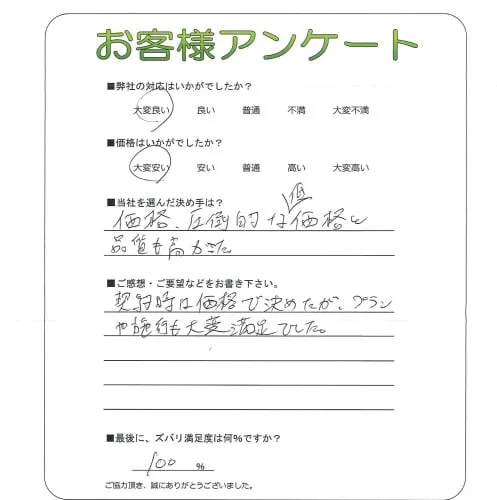 お客様アンケート
■弊社の対応はいかがでしたか?
大変良い 良い 普通 不満 大変不満
■価格はいかがでしたか?
大変安い 安い 普通 高い 大変高い
■当社を選んだ決め手は?
価格、圧倒的な低価格と
品質も高かった
■ご感想・ご要望などをお書き下さい。
契約時は価格で決めたが、プラン
や施行も大変満足でした。
■最後に、ズバリ満足度は何%ですか?
100 %
ご協力頂き、誠にありがとうございました。